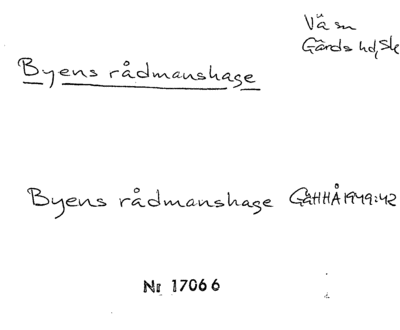 Vä sn
Gärds hd, Sk
Byens rådmanshage
Byens rådmanshage GäHHÅ 1949:42
Nr 17066